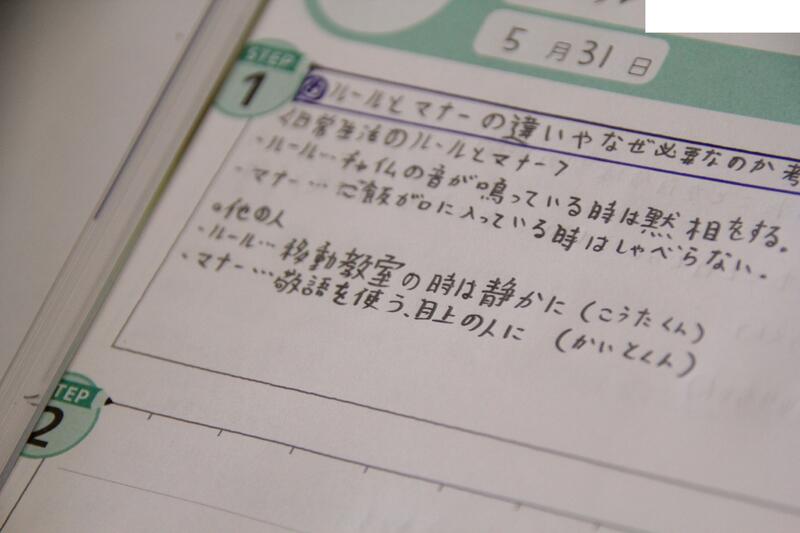 5月31日
STEP
1
め ルールとマナーの違いやなぜ必要なのか考
<日常生活のルールとマナー>
・ルール…チャイムの音が鳴っている時は黙想をする。
・マナー…ご飯が口に入っている時はしゃべらない。
o他の人
・ルール…移動教室の時は静かに(こうたくん)
・マナー…敬語を使う、目上の人に (かいとくん)
TEP
2